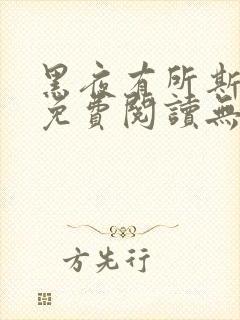 黑夜有所斯
免費閱讀無
方先行